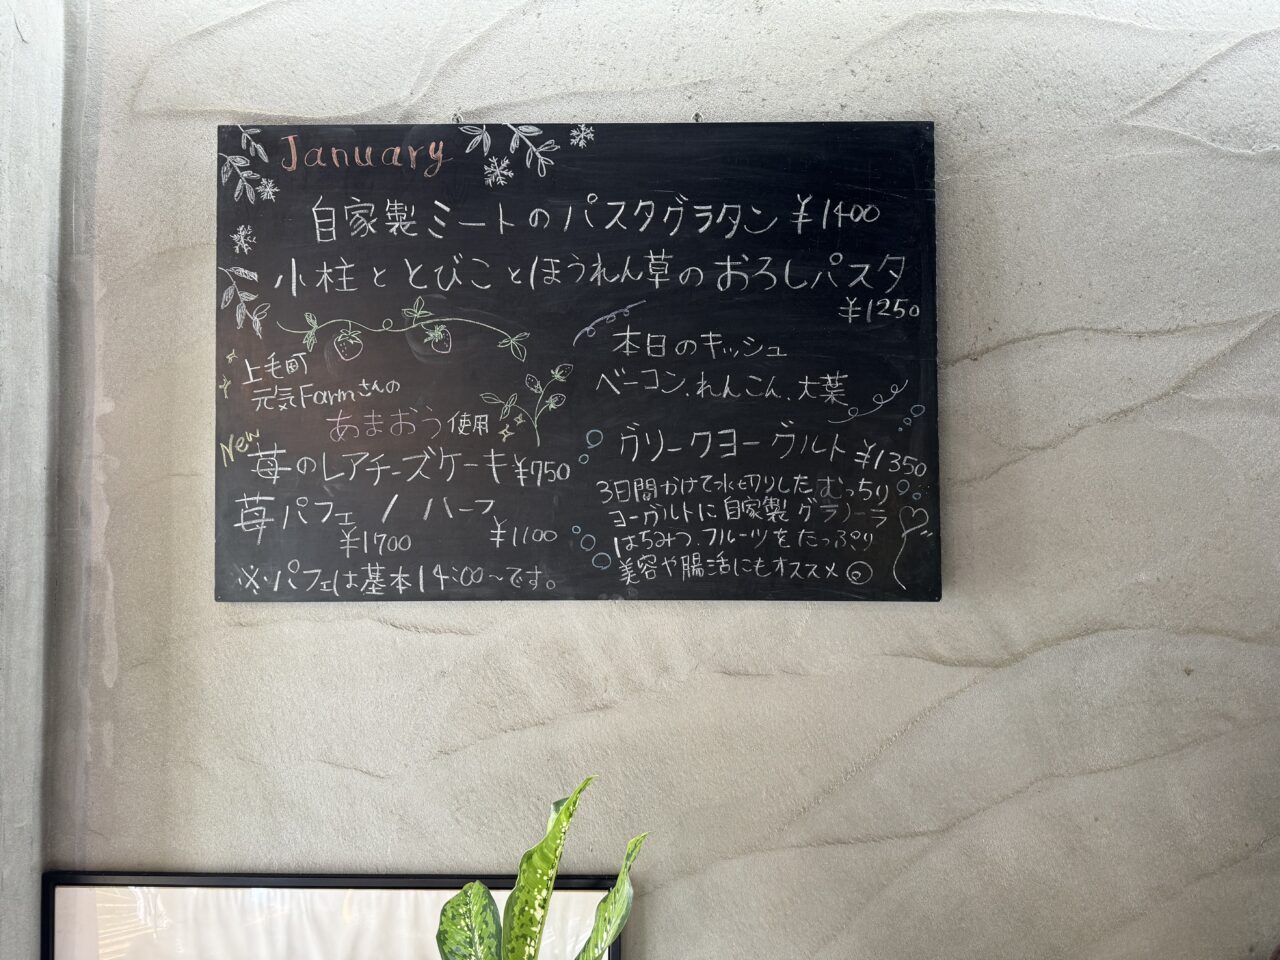 January
自家製ミートのパスタグラタン ¥1400
小柱ととびことほうれん草のおろしパスタ
¥1250
上毛町
元気Farmさんの
あまおう使用
New
苺のレアチーズケーキ ¥750
苺パフェ / ハーフ
¥1700 ¥1100
※パフェは基本14:00~です。
本日のキッシュ
ベーコン、れんこん、大葉
グリークヨーグルト ¥1350
3日間かけて水切りした むっちり
ヨーグルトに自家製グラノーラ
はちみつ、フルーツをたっぷり
美容や腸活にもオススメ